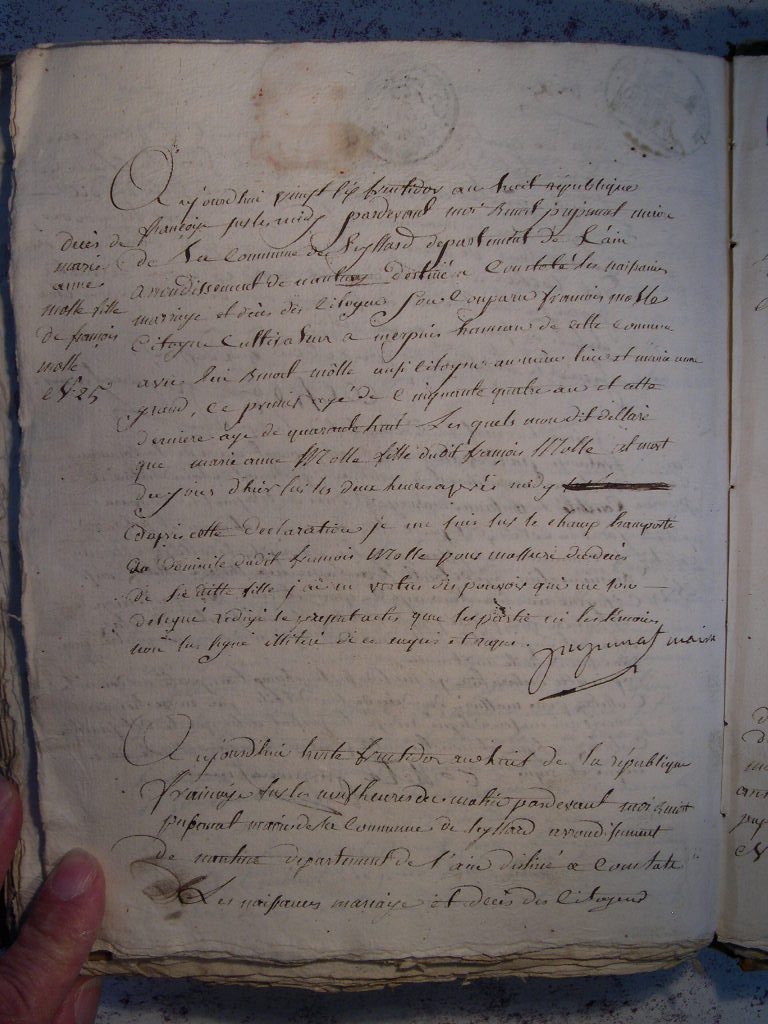 Aujourdhui vingt six fructidor an huit république
françoise sur les midy pardevant moi Benoit pupunat maire
de La Commune de Leyssard departement de L'ain
arrondissement de nantua destiné a Constaté les naissances
marriage et décès des Citoyens sont Comparu françois molle
Citoyen Cultivateur a merpuis hameau de cette Commune
avec lui Benoit mölle aussi Citoyen au même lieu et marie anne
grand, Ce premier agé de Cinquante quatre an et cette
derniere age de quarante huit Les quels mon dit dellaré
que marie anne Molle fille dudit françois Molle est mort
du jour d'hier sur les deux heures après midy
d'après cette declaration je me suis sur le champ transporté
au domicile dudit francois Molle pour massuré du décès
de sa ditte fille j'ai en vertus des pouvoir qui me son
delegué redigé le present acte que les partie ni les témoins
non sus signé illitéré de ce enquis et requis. pupunat maire
décès de
marie
anne
molle fille
de françois
molle
N.° 25
Aujourdhui trente fructidor an huit de la république
françoise sur les neuf heures du matin pardevant moi Benoit
pupunat maire de la Commune de Leyssard arrondissement
de nantua departement de l'ain destiné a Constaté
Les naissances mariage et décès des Citoyens